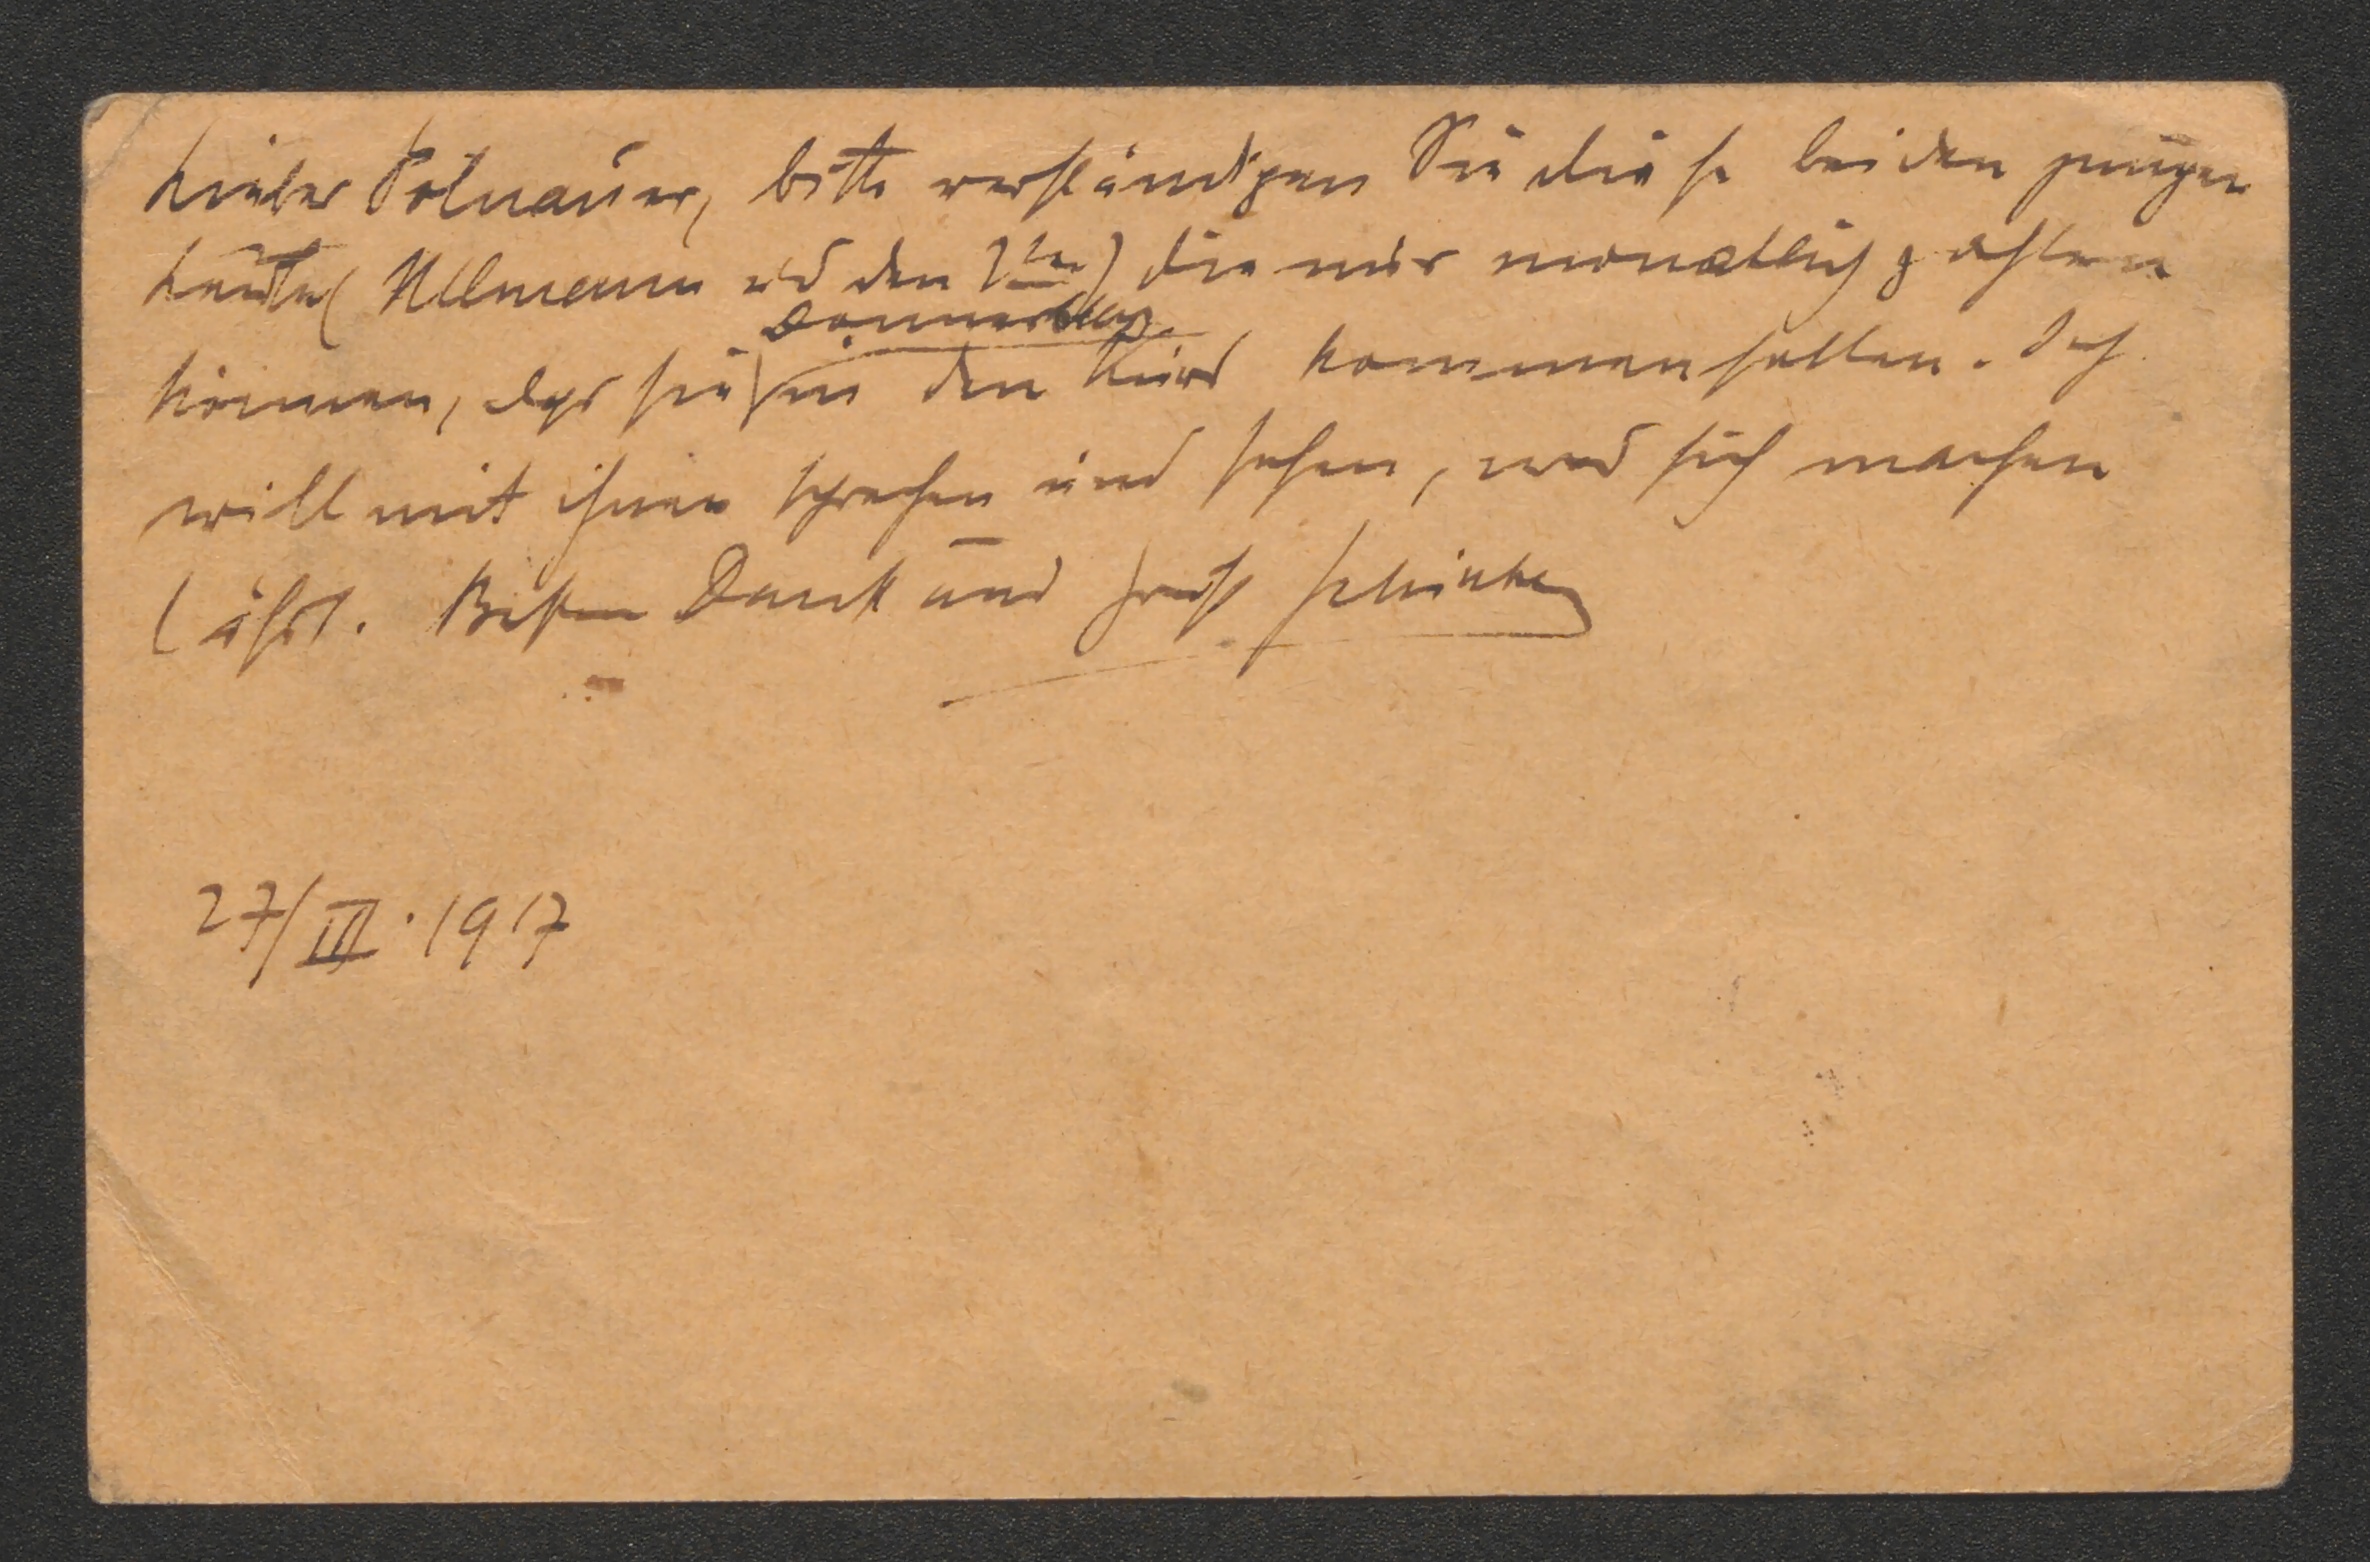 Lieber Polnauer, bitte verständigen Sie diese beiden jungen
Leute (Ullmann u d den 2ten) die nur monatlich zahlen
Donnerstag
können, dass sie in den Kurs kommen sollen. Ich
will mit ihnen sprechen und sehen, was sich machen
lässt. Besten Dank und Gruß Schönberg
27/III.1917